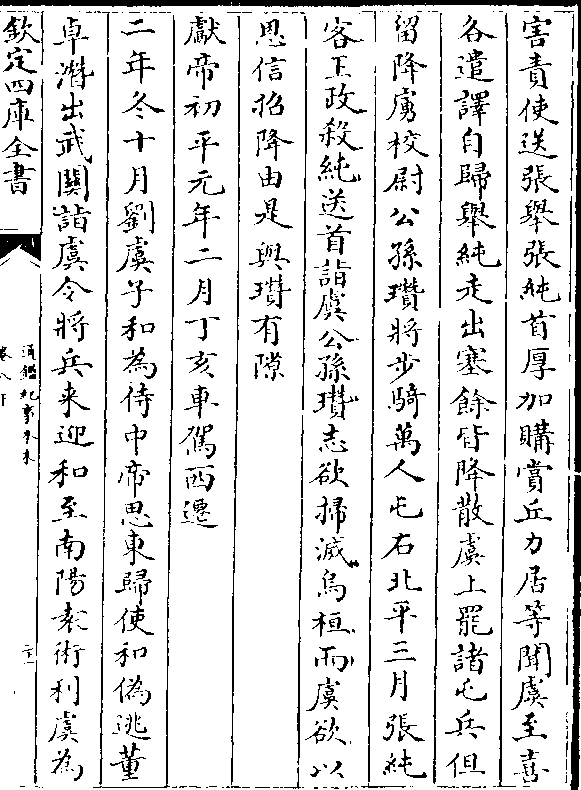 害責使送張舉張純首厚加購賞丘力居等聞虞至喜
各遣譯自歸舉純走出塞餘皆降散虞上罷諸屯兵但
留降虜校尉公孫瓚將步騎萬人屯右北平三月張純
客王政殺純送首詣虞公孫瓚志欲掃滅烏桓而虞欲以
恩信招降由是與瓚有隙
獻帝初平元年二月丁亥車駕西遷
二年冬十月劉虞子和為侍中帝思東歸使和偽逃董
卓潛出武關詣虞令將兵来迎和至南陽袁術利虞為
欽定四庫全書
通鑑紀事本末
卷八下